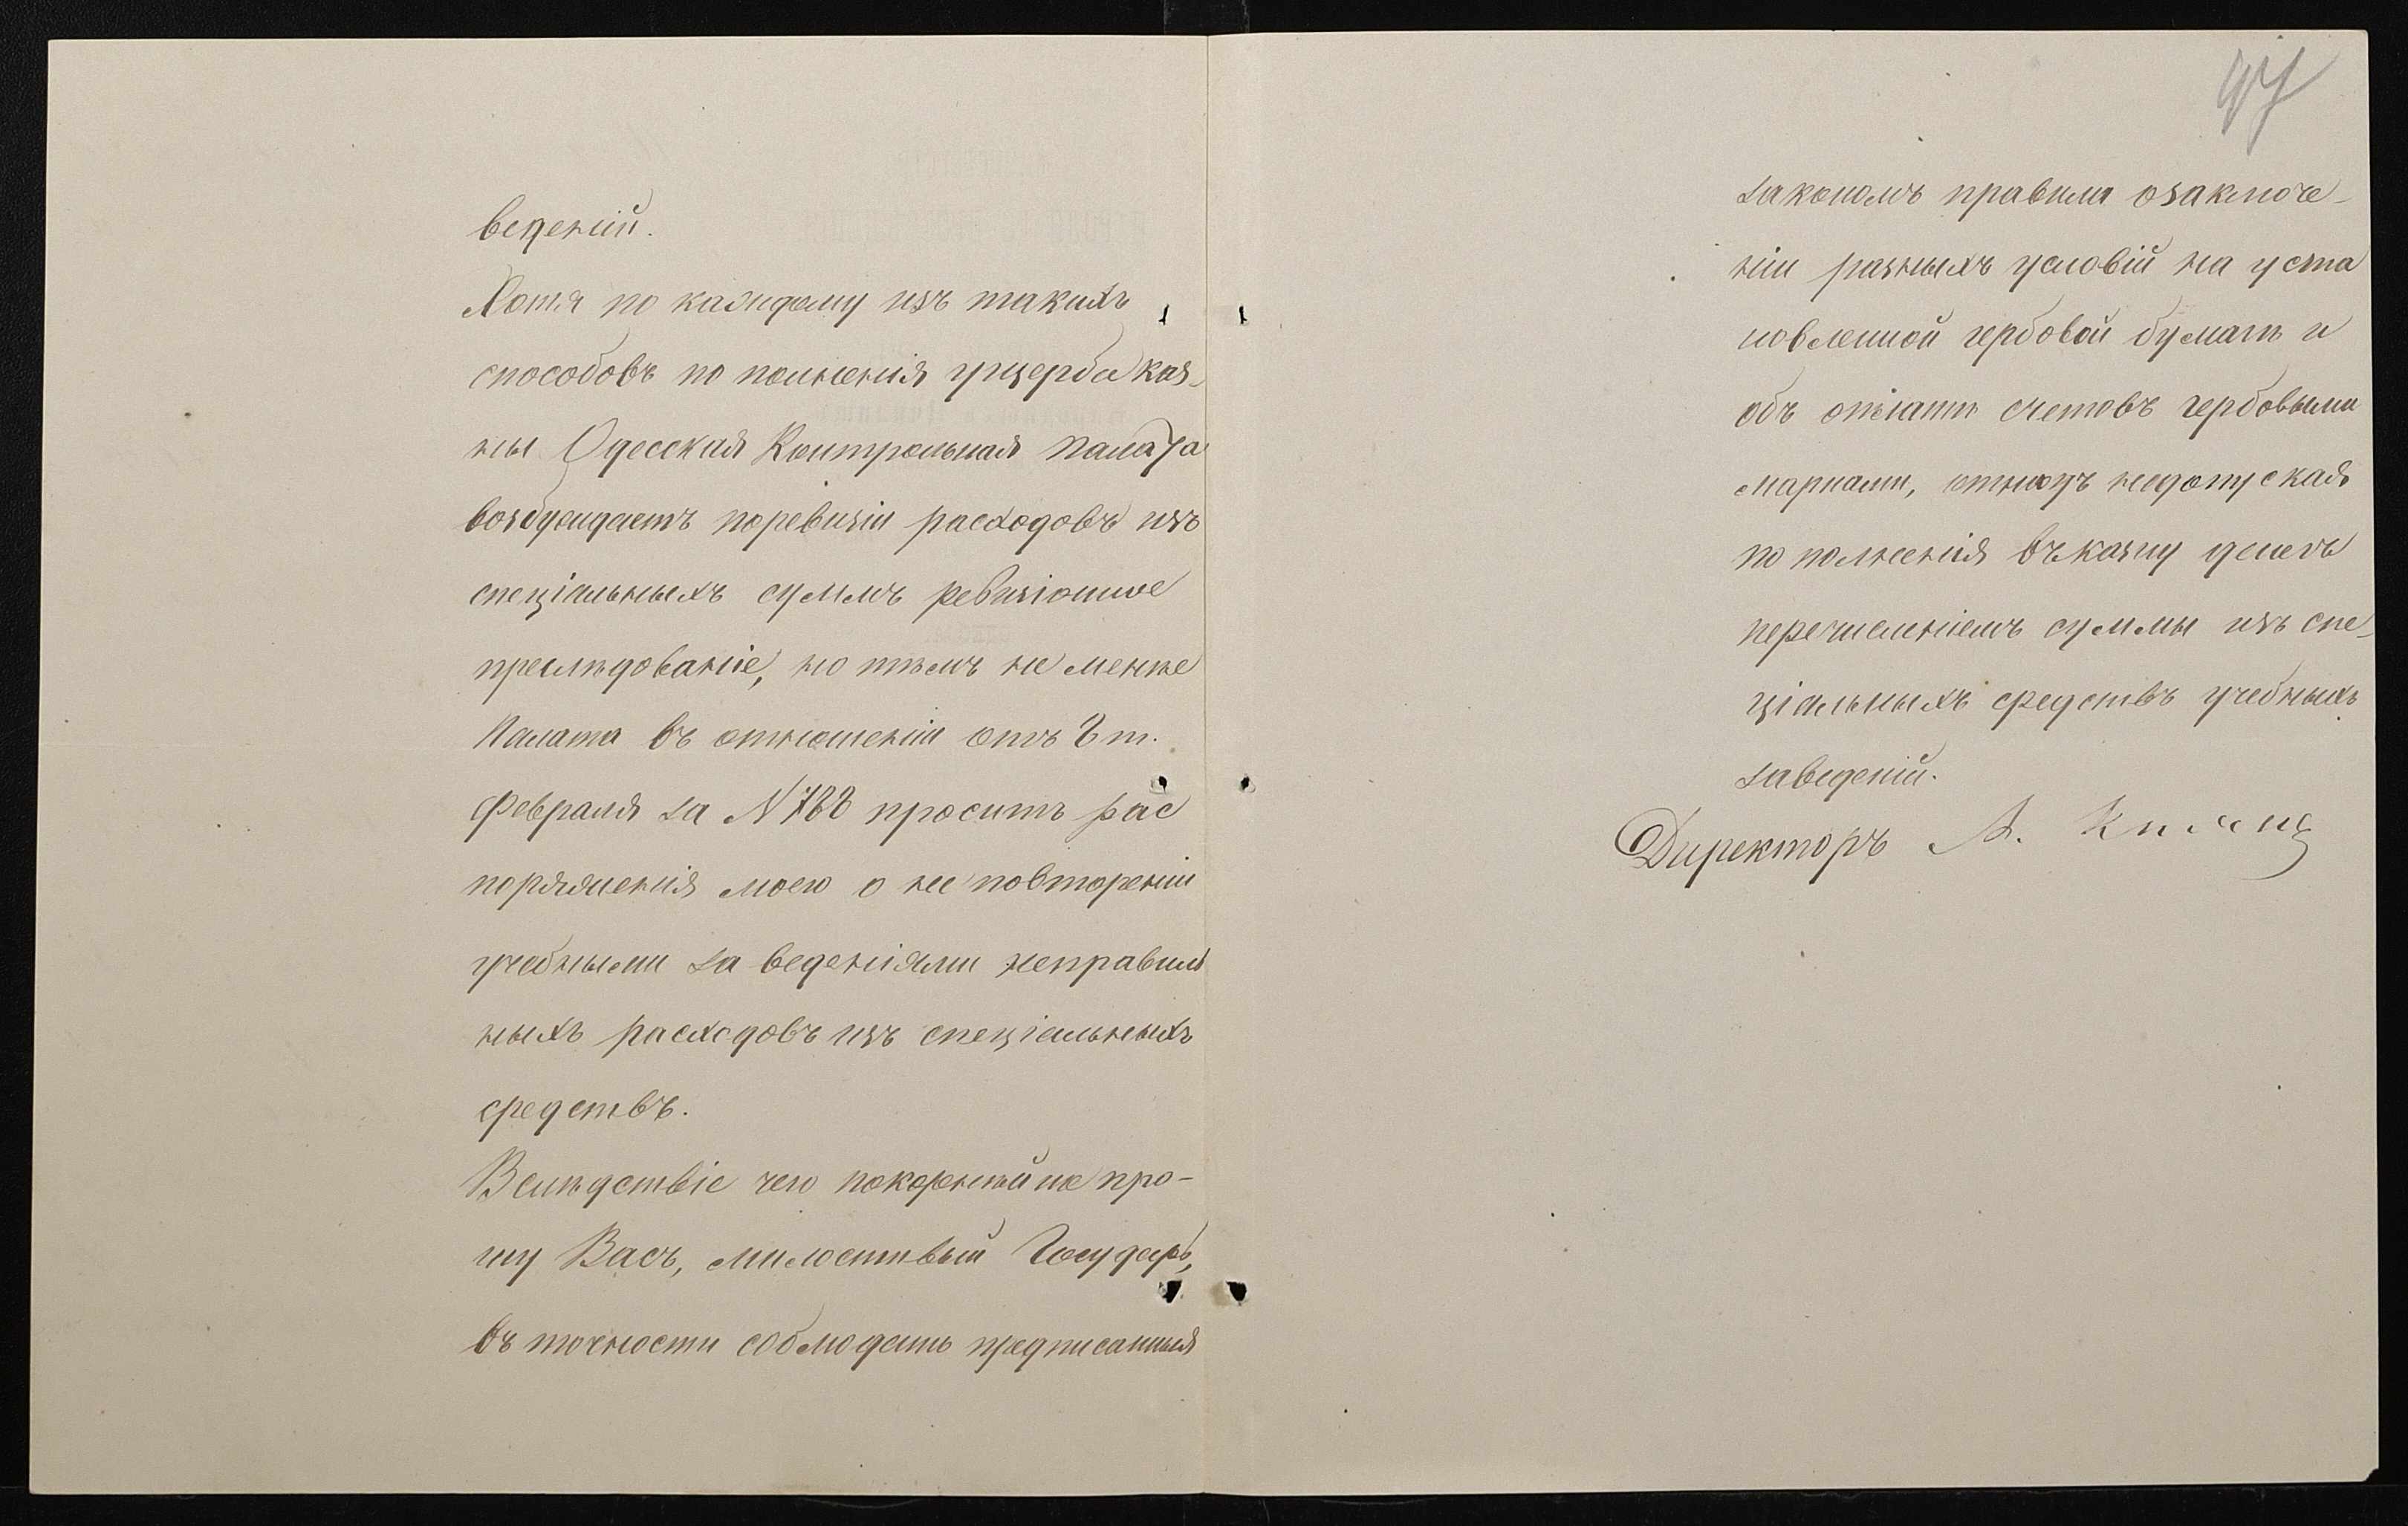 веденій.
Хотя по каждому изъ такихъ
способовъ по полненія ущерба каз-
ны Одесская Контрольная палата
возбуждаетъ поревизіи расходовъ изъ
спеціальныхъ суммъ ревизіонное
преслѣдованіе, но тѣмъ не менѣе
Палата въ отношеніи отъ 8 т.
Февраля за № 788 проситъ рас
поряженія моего о не повтореніи
учебными за веденіями неправиль
ныхъ расходовъ изъ спеціальныхъ
средствъ.
Вслѣдствіе чего покорнѣйше про-
шу Васъ, милостивый Государь,
въ точности соблюдать предписанныя
97
закономъ правила озаключе-
ніи разныхъ условій на уста
новленной гербовой бумагѣ и
объ оплатѣ счетовъ гербовыми
марками, отнюдь недопуская
по полненія въказну денегъ
перечисленіемъ суммы изъ спе-
ціальныхъ средствъ учебныхъ
заведеній.
Директоръ А.